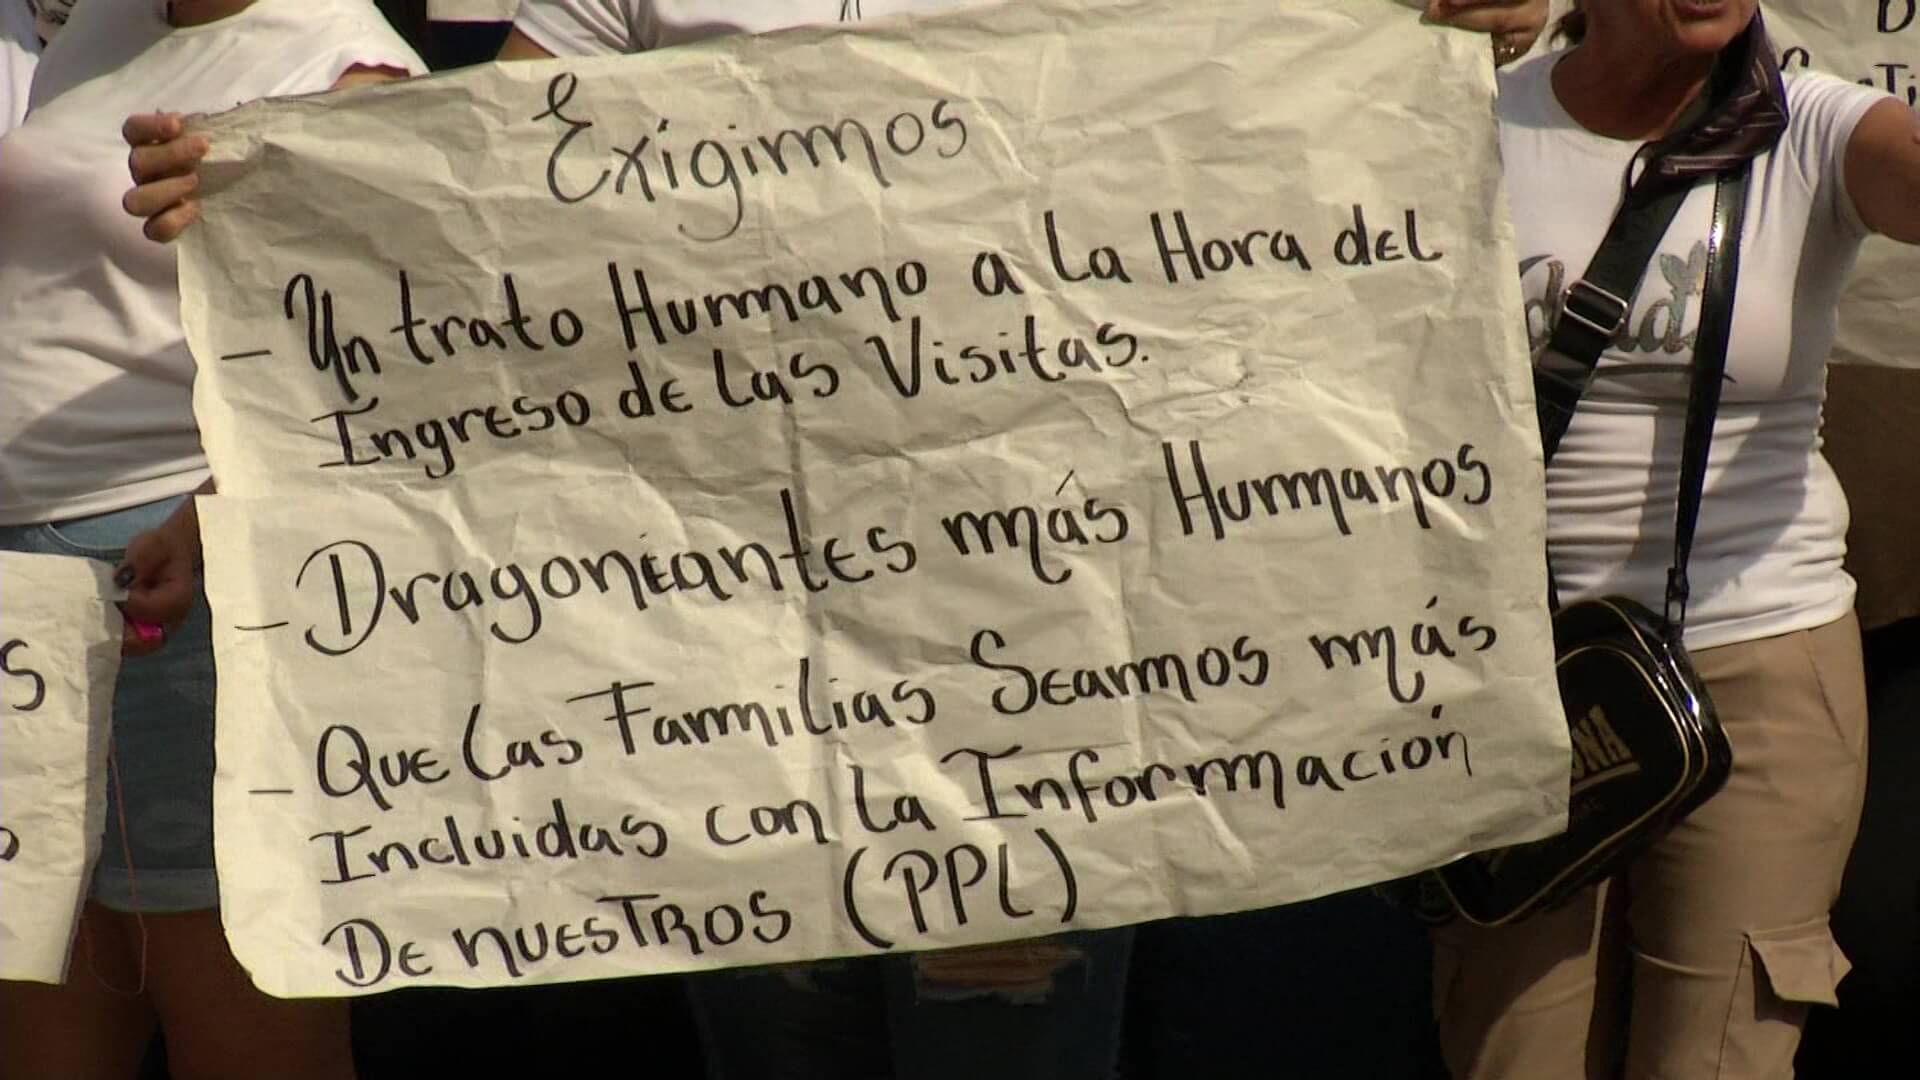 Exigimos
- Un trato Humano a la Hora del
Ingreso de las Visitas.
- Dragoniantes más Humanos
- Que las Familias Seamos más
Incluidas con la Información
De nuestros (PPL)